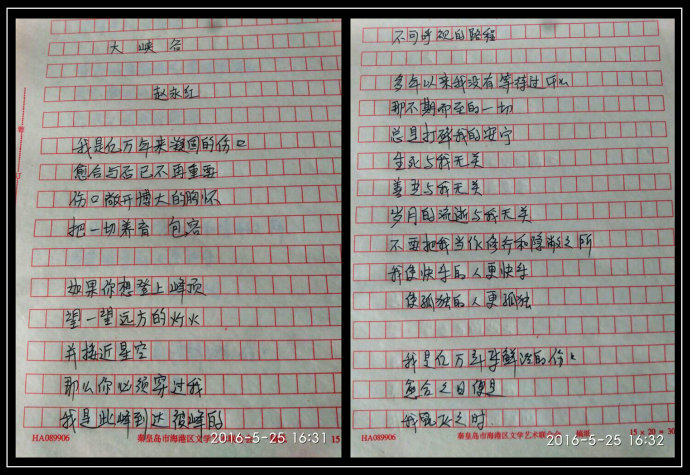 大峡谷
赵永红
我是亿万年来凝固的伤口
愈合与否已不再重要
伤口敞开博大的胸怀
把一切养育 包容
如果你想登上峰顶
望一望远方的灯火
并接近星空
那么你必须穿过我
我是此峰到达彼峰的
HA089906
秦皇岛市海港区文学艺术
2016-5-25 16:31
15
不可忽视的路程
多年以来我没有等待过什么
那不期而至的一切
总是打碎我的安宁
生死与我无关
善恶与我无关
岁月的流逝与我无关
不要把我当作修养和隐蔽之所
我使快乐的人更快乐
使孤独的人更孤独
我是亿万年来鲜活的伤口
愈合之日便是
我毁灭之时.
HA089906
秦皇岛市海港区文学艺术联合会 稿纸
15×20=30
2016-5-25 16:32